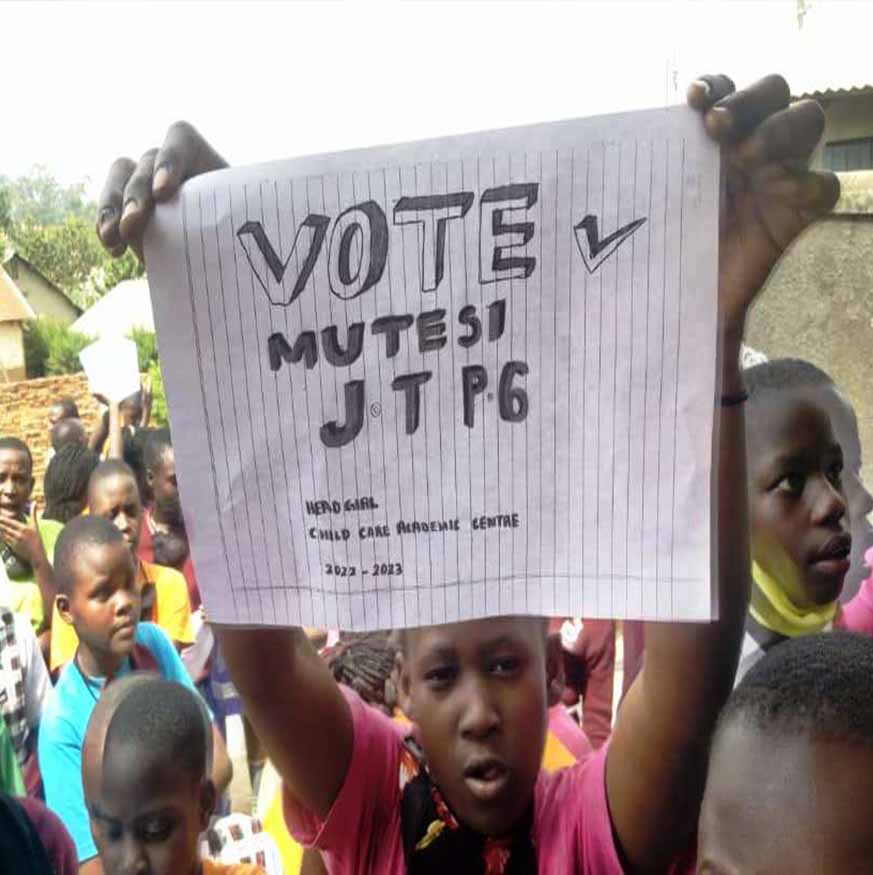 VOTE ✓
MUTESI
J.T P.6
HEAD GIRL
CHILD CARE ACADEMIC CENTRE
2022 - 2023